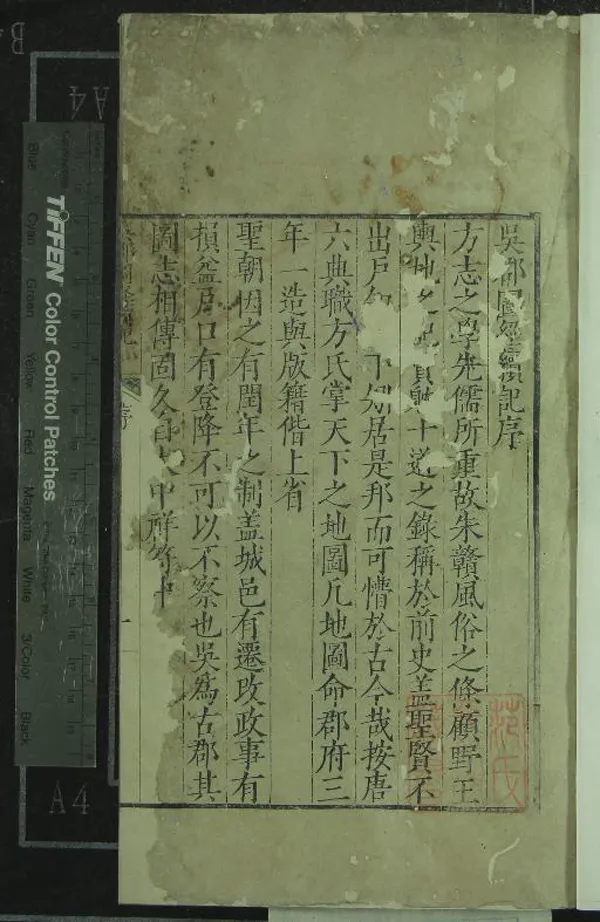 吳都圖經續記序
方志之學先儒所重故朱贛風俗之條顧野王
輿地之記賈躭十道之錄稱於前史盖聖賢不
出戶知天下矧居是邦而可懵於古今哉按唐
六典職方氏掌天下之地圖凡地圖命郡府三
年一造與版籍偕上省
聖朝因之有閏年之制盖城邑有遷改政事有
損益戶口有登降不可以不察也吳爲古郡其
圖志相傳固久自大中祥符中
序
一
TIFFEN Color Control Patches
Blue
Cyan
Green
Yellow
Red
Magenta
White
3/Color
Black
A4
A4
B